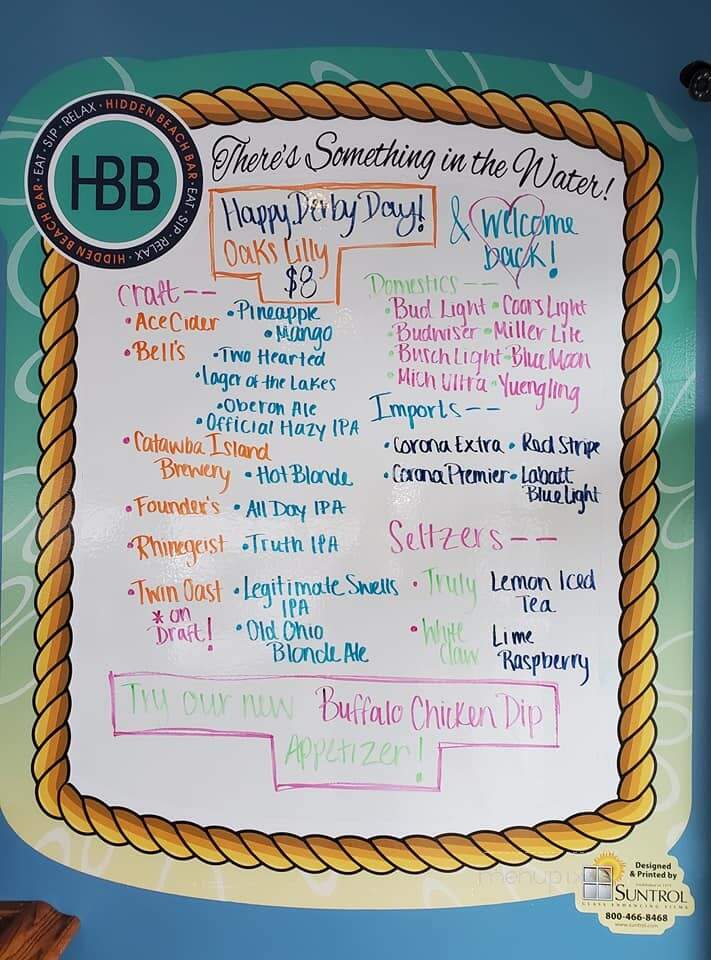 HIDDEN BEACH BAR · EAT · SIP · RELAX · HIDDEN BEACH BAR · EAT · SIP · RELAX ·
HBB
There's Something in the Water!
Happy Derby Day!
Oaks Lilly
$8
& Welcome
back!
Craft --
• Ace Cider • Pineapple
• Mango
• Bell's • Two Hearted
• Lager of the Lakes
• Oberon Ale
• Official Hazy IPA
• Catawba Island
Brewery • Hot Blonde
• Founder's • All Day IPA
• Rhinegeist • Truth IPA
• Twin Oast • Legitimate Swells
IPA
* on
Draft! • Old Ohio
Blonde Ale
Domestics --
• Bud Light • Coors Light
• Budwiser • Miller Lite
• Busch Light • Blue Moon
• Mich Ultra • Yuengling
Imports --
• Corona Extra • Red Stripe
• Corona Premier • Labatt
Blue Light
Seltzers --
• Truly Lemon Iced
Tea
• White
Claw Lime
Raspberry
Try our new Buffalo Chicken Dip
Appetizer!
menupix
Designed
& Printed by
SUNTROL
GLASS ENHANCING FILMS
800-466-8468
www.suntrol.com